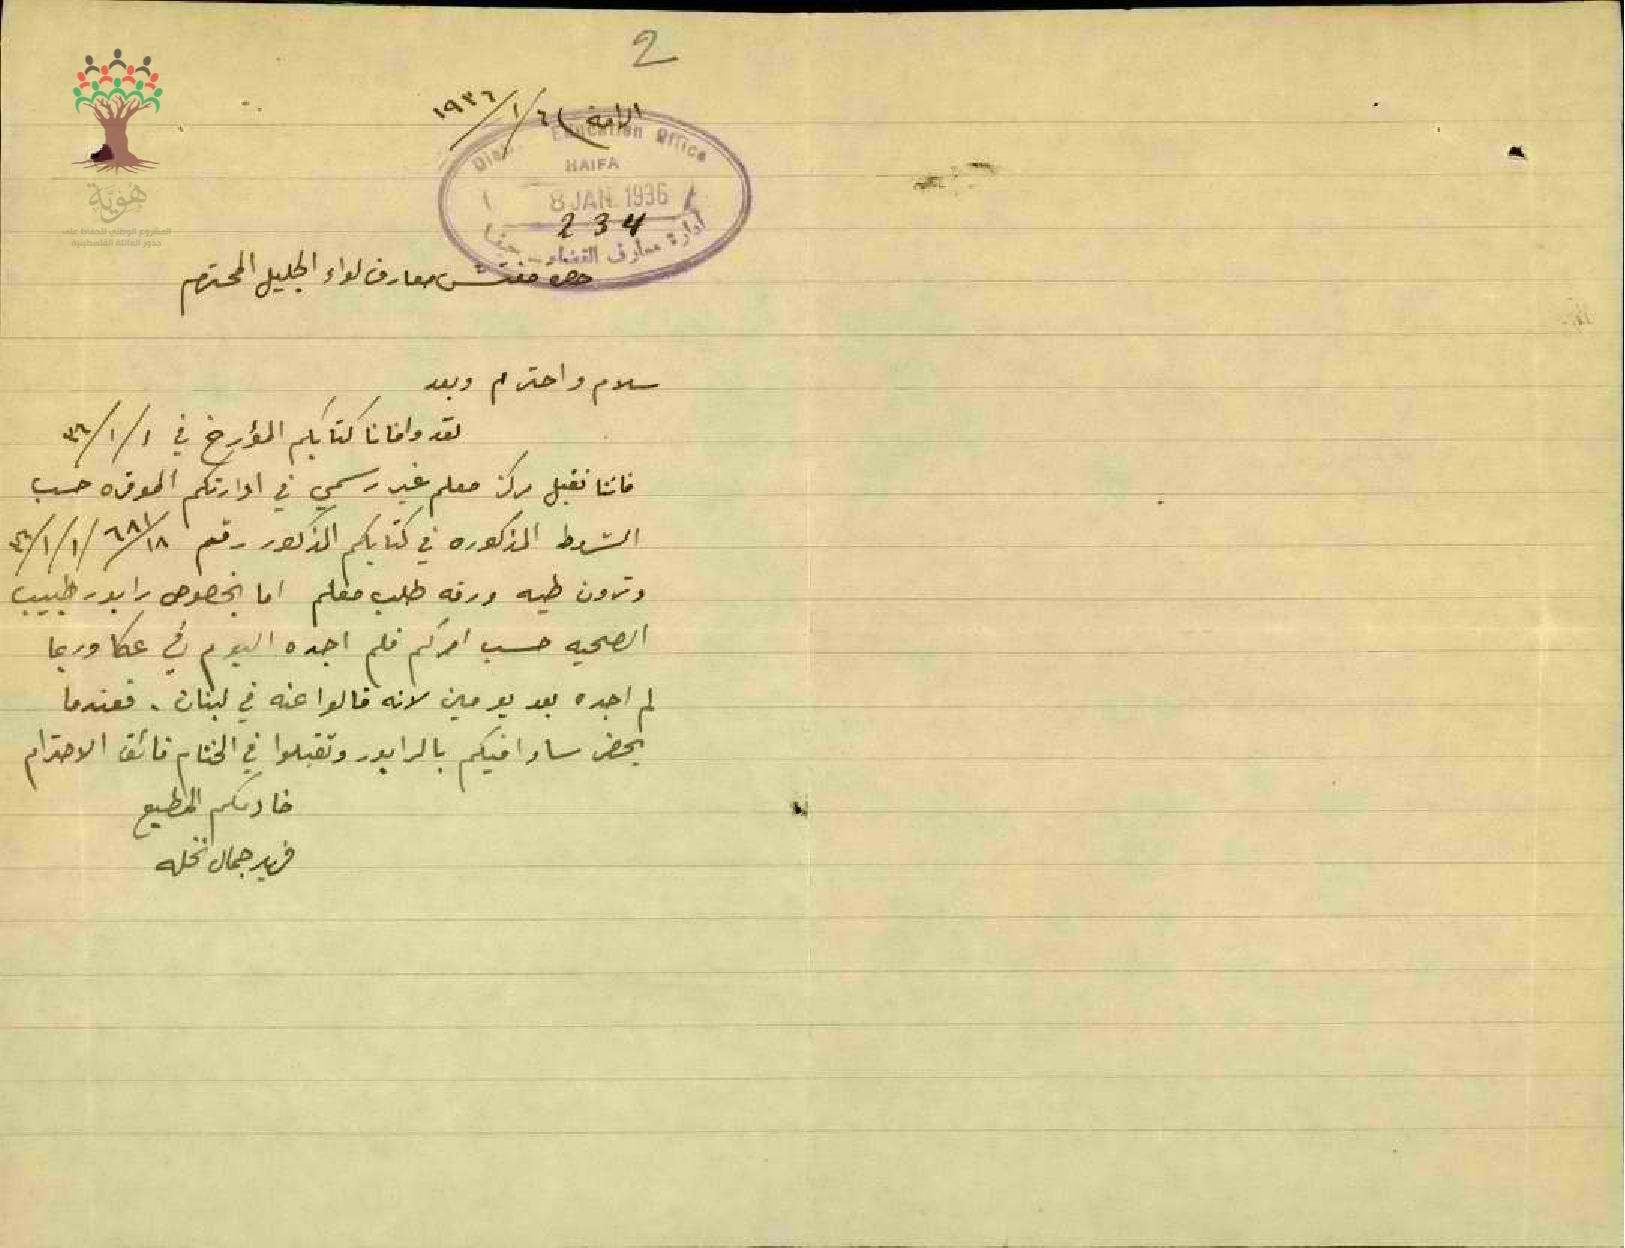 2
الرامة ٦/١/١٩٣٦
District Education Office
HAIFA
8 JAN. 1936
234
ادارة معارف القضاء - حيفا
هوية
المشروع الوطني للحفاظ على
جذور العائلة الفلسطينية
حضرة مفتش معارف لواء الجليل المحترم
سلام واحترام وبعد
لقد وافانا كتابكم المؤرخ في ١/١/٣٦
فاننا نقبل مركز معلم غير رسمي في ادارتكم الموقره حسب
الشروط المذكوره في كتابكم المذكور رقم ٦٨١/١٨ ١/١/٣٦
وترون طيه ورقه طلب معلم اما بخصوص رابور طبيب
الصحيه حسب امركم فلم اجده اليوم في عكا وربما
لم اجده بعد يومين لانه قالوا عنه في لبنان . فعندما
يحضر ساوافيكم بالرابور وتقبلوا في الختام فائق الاحترام
خادمكم المطيع
فريد جمال نخله